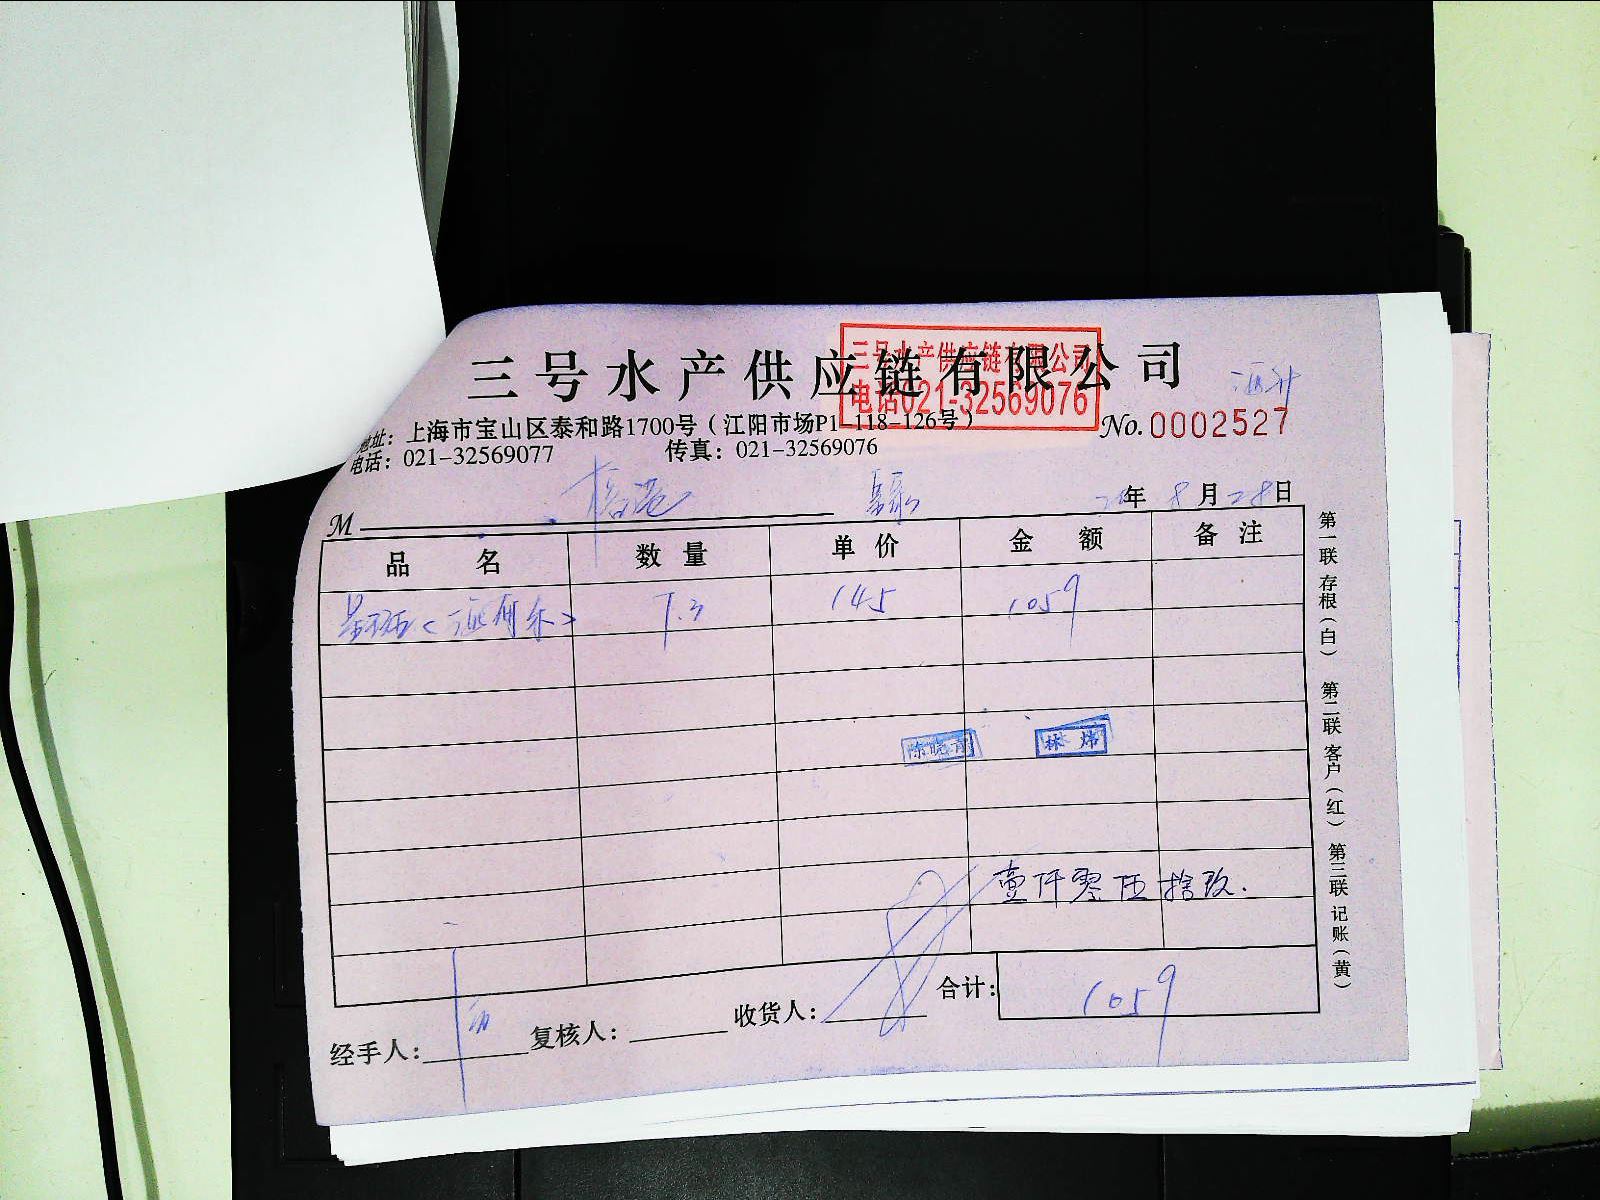 三号水产供应链有限公司
三号水产供应链有限公司
电话021-32569076
地址：上海市宝山区泰和路1700号（江阳市场P1-118-126号）
No.0002527
电话：021-32569077 传真：021-32569076
M 榕港
年 8月28日
品名 数量 单价 金额 备注
7.3 145 1059
陈晓育 林炜
壹仟零伍拾玖.
合计： 1059
经手人： 复核人： 收货人：
第一联存根（白） 第二联客户（红） 第三联记账（黄）